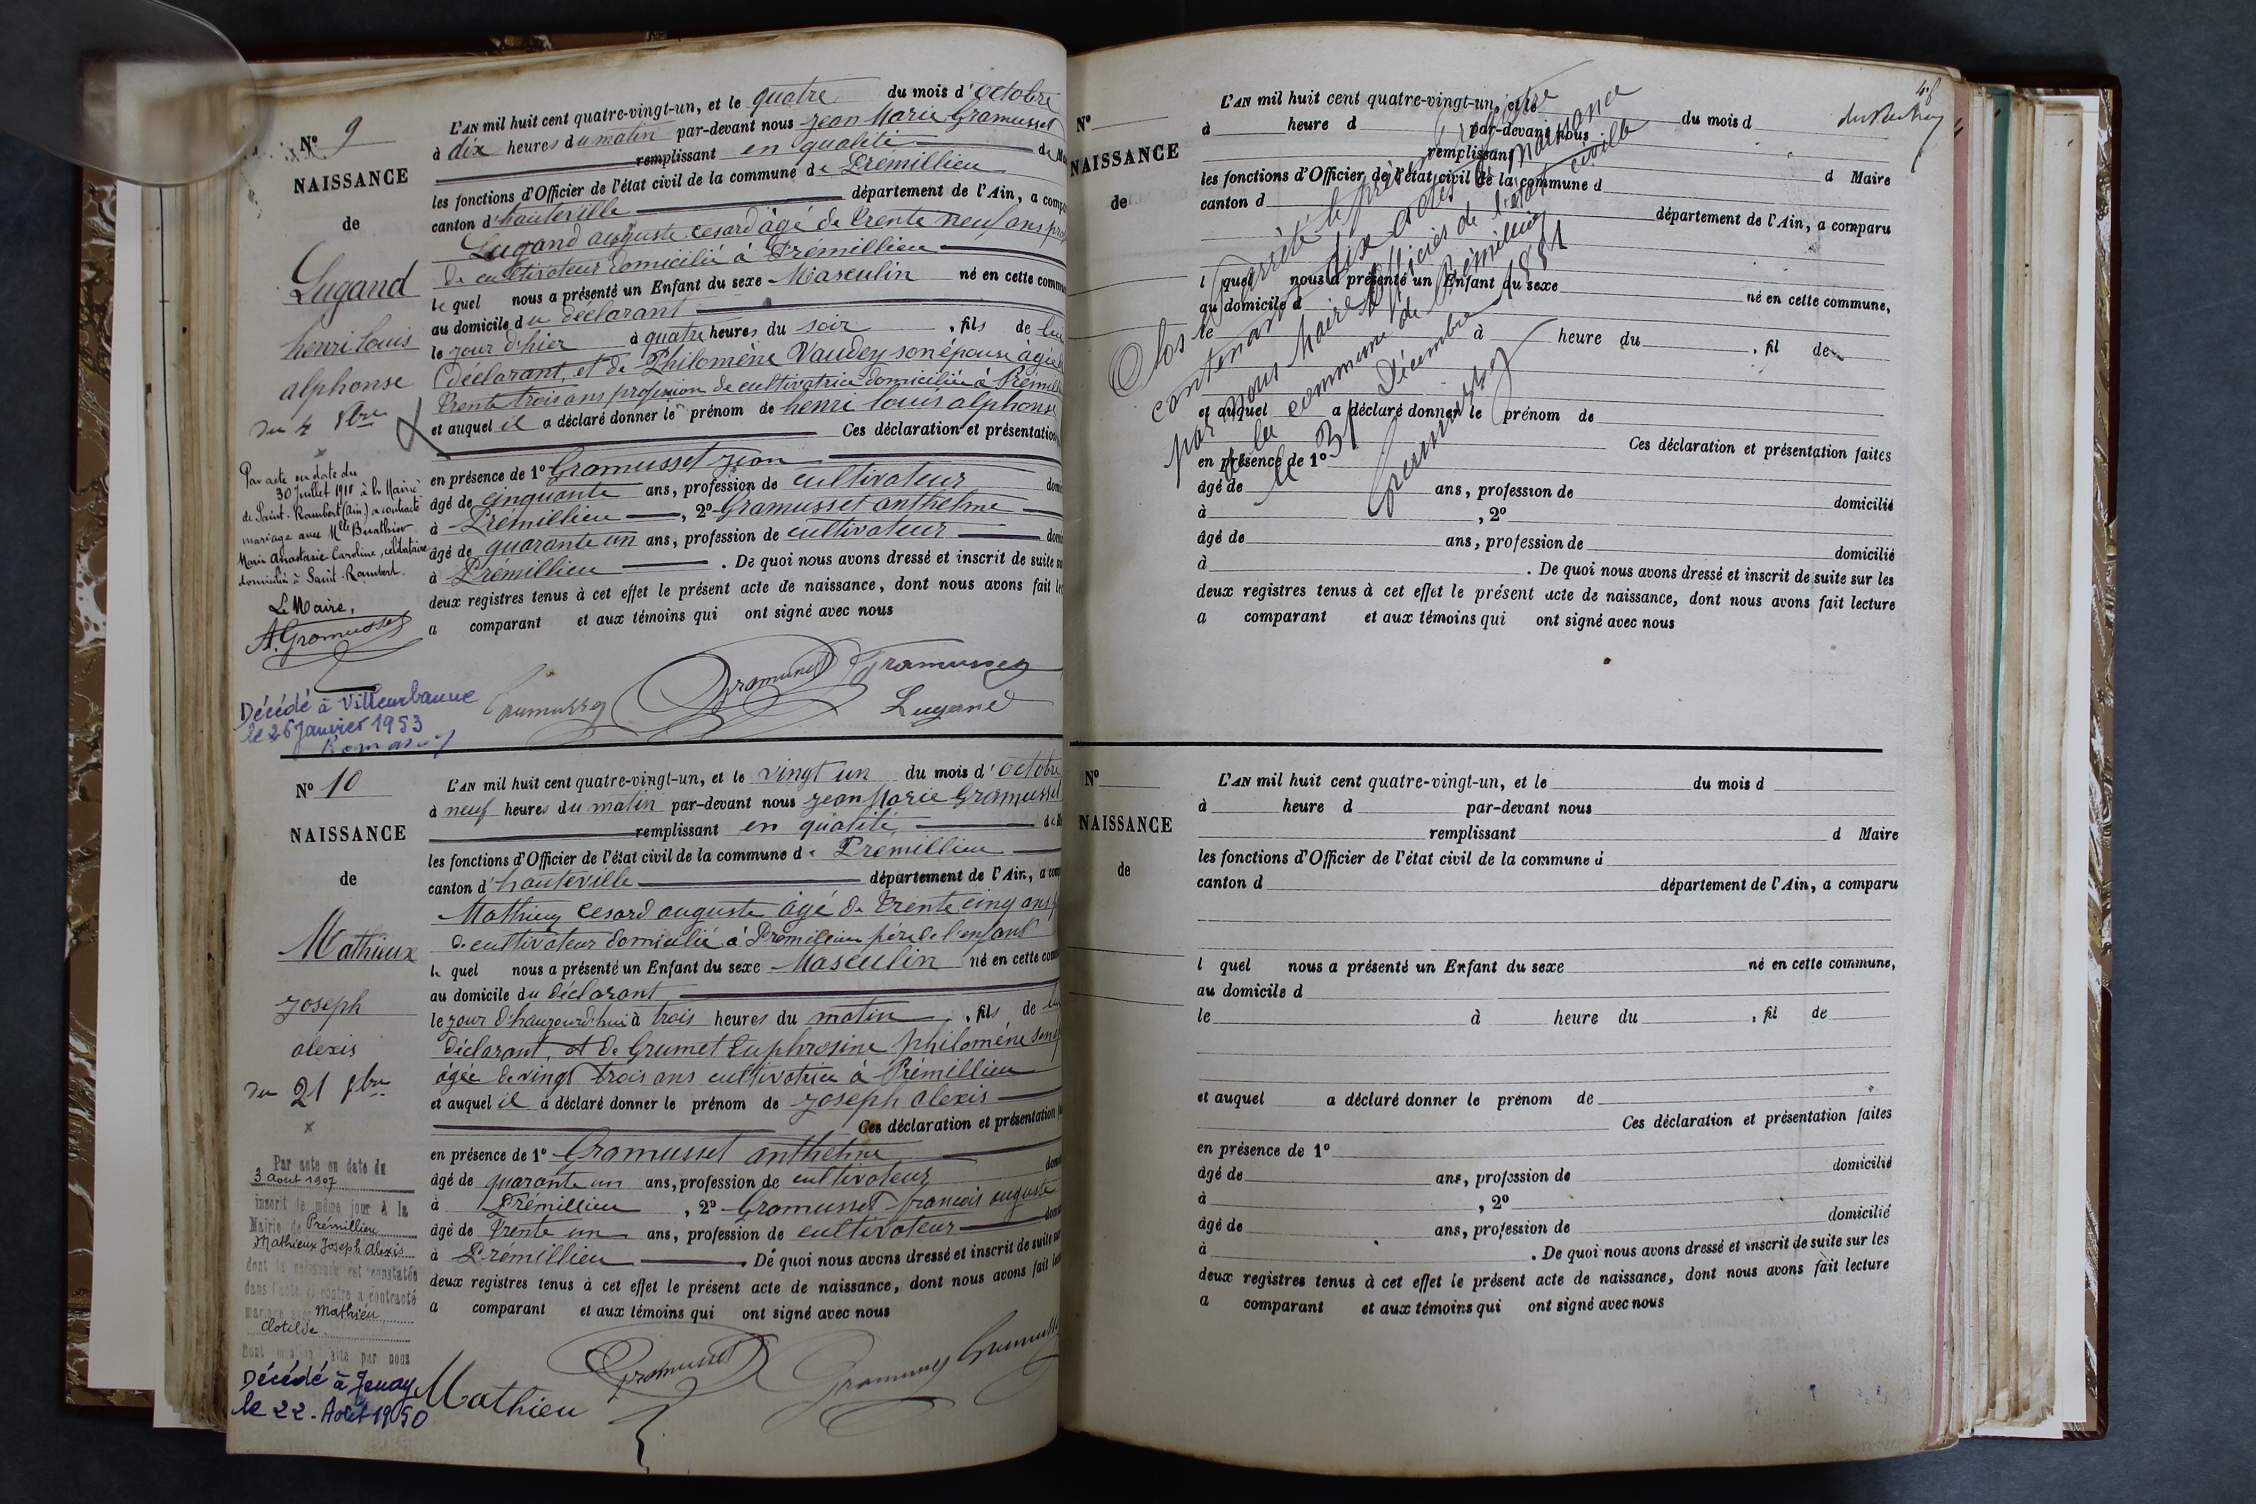 N° 9
NAISSANCE
de
Lugand
henri louis
alphonse
du 4 8bre
Par acte en date du
30 Juillet 1910 à la Mairie
de Saint-Rambert (Ain) a contracté
mariage avec Mlle Berathier
Marie Anastasie Caroline, célibataire
domiciliée à Saint-Rambert.
Le Maire,
A. Gramusset
Décédé à Villeurbanne
le 26 Janvier 1953
L'AN mil huit cent quatre-vingt-un, et le quatre du mois d'octobre
à dix heures du matin par-devant nous jean Marie Gramusset
remplissant en qualité de
les fonctions d'Officier de l'état civil de la commune de Prémillieu
canton d'hauteville département de l'Ain, a comparu
Lugand auguste cesard âgé de trente neuf ans
de cultivateur domicilié à Prémillieu
le quel nous a présenté un Enfant du sexe Masculin né en cette commune
au domicile du déclarant
le jour d'hier à quatre heures du soir, fils de lui
déclarant, et de Philomène Vaudey son épouse âgée de
trente trois ans profession de cultivatrice domiciliée à Prémillieu
et auquel il a déclaré donner le prénom de henri louis alphonse
Ces déclaration et présentation
en présence de 1° Gramusset jean
âgé de cinquante ans, profession de cultivateur
à Prémillieu, 2° Gramusset anthelme
âgé de quarante un ans, profession de cultivateur
à Prémillieu. De quoi nous avons dressé et inscrit de suite
deux registres tenus à cet effet le présent acte de naissance, dont nous avons fait
a comparant et aux témoins qui ont signé avec nous
Gramusset Gramusset Gramusset
Lugand
N° 10
NAISSANCE
de
Mathieux
joseph
alexis
du 21 8bre
Par acte en date du
3 aout 1907
inscrit le même jour à la
Mairie de Prémillieu
Mathieux Joseph Alexis
dont la naissance est constatée
dans l'acte ci-contre a contracté
mariage avec Mathieu
Clotilde
Décédé à Tenay
le 22 Août 1950
L'AN mil huit cent quatre-vingt-un, et le vingt un du mois d'octobre
à neuf heures du matin par-devant nous jean Marie Gramusset
remplissant en qualité
les fonctions d'Officier de l'état civil de la commune de Premillieu
canton d'hauteville département de l'Ain, a
Mathieux cesard auguste âgé de trente cinq ans
de cultivateur domicilié à Prémillieu père de l'enfant
le quel nous a présenté un Enfant du sexe Masculin né en cette
au domicile du déclarant
le jour d'haujourd'hui à trois heures du matin, fils de lui
déclarant, et de Grumet Euphrosine philomène son
âgée de vingt trois ans cultivatrice à Prémillieu
et auquel il a déclaré donner le prénom de joseph alexis
Ces déclaration et présentation
en présence de 1° Gramusset anthelme
âgé de quarante un ans, profession de cultivateur
à Prémillieu, 2° Gramusset francois auguste
âgé de trente un ans, profession de cultivateur
à Prémillieu. De quoi nous avons dressé et inscrit de suite
deux registres tenus à cet effet le présent acte de naissance, dont nous avons fait
a comparant et aux témoins qui ont signé avec nous
Gramusset
Mathieu
48
N°
NAISSANCE
de
L'AN mil huit cent quatre-vingt-un, et le du mois d
à heure d par-devant nous
remplissant d Maire
les fonctions d'Officier de l'état civil de la commune d
canton d département de l'Ain, a comparu
l quel nous a présenté un Enfant du sexe né en cette commune,
au domicile d
le à heure du, fil de
et auquel a déclaré donner le prénom de
Ces déclaration et présentation faites
en présence de 1°
âgé de ans, profession de domicilié
à, 2°
âgé de ans, profession de domicilié
à. De quoi nous avons dressé et inscrit de suite sur les
deux registres tenus à cet effet le présent acte de naissance, dont nous avons fait lecture
a comparant et aux témoins qui ont signé avec nous
Clos et arrêté le présent registre
contenant dix actes de naissance
par nous Maire Officier de l'état civille
de la commune de Prémillieu
le 31 Décembre 1881
Gramusset
N°
NAISSANCE
de
L'AN mil huit cent quatre-vingt-un, et le du mois d
à heure d par-devant nous
remplissant d Maire
les fonctions d'Officier de l'état civil de la commune d
canton d département de l'Ain, a comparu
l quel nous a présenté un Enfant du sexe né en cette commune,
au domicile d
le à heure du, fil de
et auquel a déclaré donner le prénom de
Ces déclaration et présentation faites
en présence de 1°
âgé de ans, profession de domicilié
à, 2°
âgé de ans, profession de domicilié
à. De quoi nous avons dressé et inscrit de suite sur les
deux registres tenus à cet effet le présent acte de naissance, dont nous avons fait lecture
a comparant et aux témoins qui ont signé avec nous